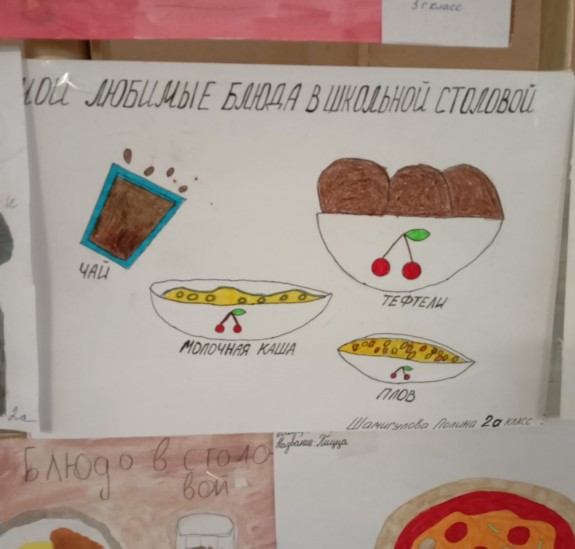 3 г класс
МОИ ЛЮБИМЫЕ БЛЮДА В ШКОЛЬНОЙ СТОЛОВОЙ
ЧАЙ
ТЕФТЕЛИ
МОЛОЧНАЯ КАША
ПЛОВ
Шамигулова Полина 2а класс
2а
Блюдо в столо
вой
Название: Пицца